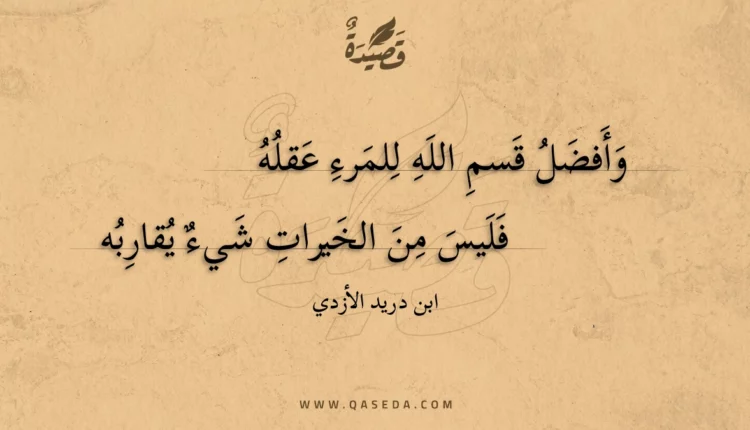 قَصِيدَةٌ
وَأَفضَلُ قَسمِ اللَهِ لِلمَرءِ عَقلُهُ
فَلَيسَ مِنَ الخَيراتِ شَيءٌ يُقارِبُه
ابن دريد الأزدي
WWW.QASEDA.COM